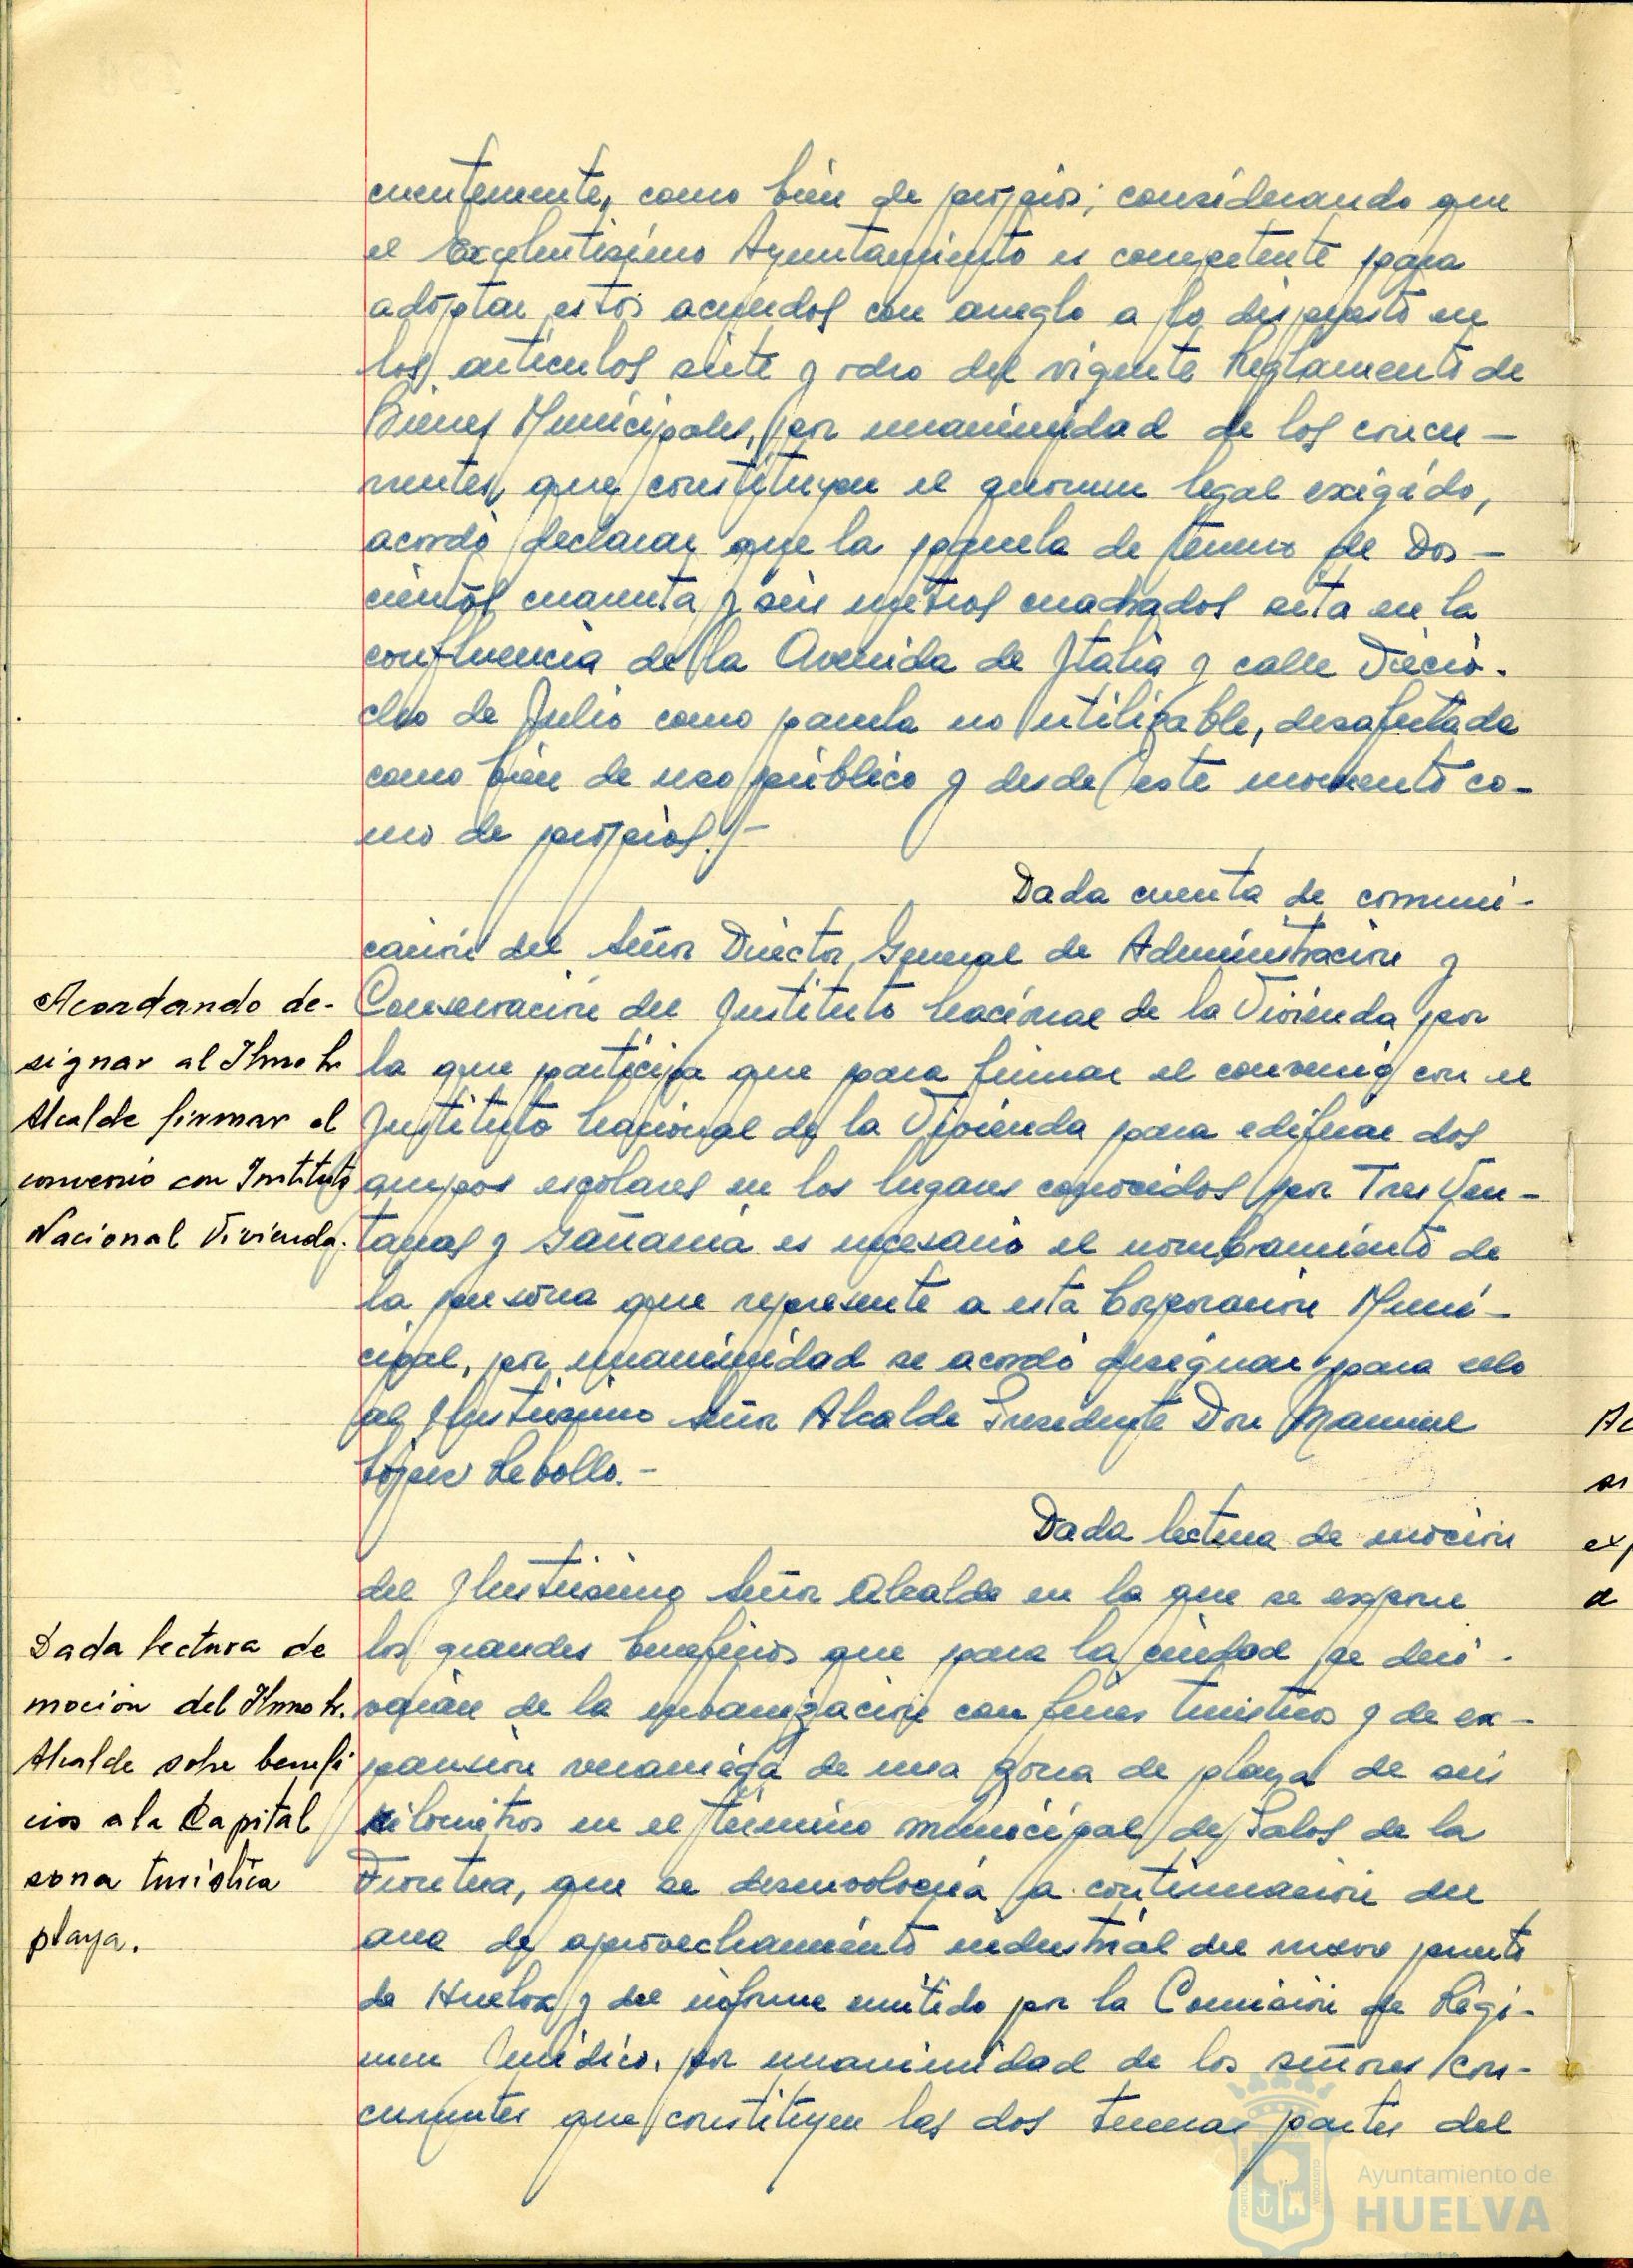 cuentemente, como bien de propios; considerando que
el Excelentísimo Ayuntamiento es competente para
adoptar estos acuerdos con arreglo a lo dispuesto en
los artículos siete y ocho del vigente Reglamento de
Bienes Municipales, por unanimidad de los concu-
rrentes, que constituyen el quorum legal exigido,
acordó declarar que la parcela de terreno de Dos-
cientos cuarenta y seis metros cuadrados sita en la
confluencia de la Avenida de Italia y calle Diecio-
cho de Julio como parcela no utilizable, desafectada
como bien de uso público y desde este momento co-
mo de propios.-
Dada cuenta de comuni-
cación del Señor Director General de Administración y
Acordando de-
signar al Ilmo Sr
Alcalde firmar el
convenio con Instituto
Nacional Vivienda.
Conservación del Instituto Nacional de la Vivienda por
la que participa que para firmar el convenio con el
Instituto Nacional de la Vivienda para edificar dos
grupos escolares en los lugares conocidos por Tres Ven-
tanas y Gañanía es necesario el nombramiento de
la persona que represente a esta Corporación Muni-
cipal, por unanimidad se acordó designar para ello
al Ilustrísimo Señor Alcalde Presidente Don Manuel
López Rebollo.-
Dada lectura de moción
del Ilustrísimo Señor Alcalde en la que se expone
Dada lectura de
moción del Ilmo Sr.
Alcalde sobre benefi
cios a la Capital
zona turística
playa.
los grandes beneficios que para la ciudad se deri-
varían de la urbanización con fines turísticos y de ex-
pansión veraniega de una zona de playa de seis
kilómetros en el término municipal de Palos de la
Frontera, que se desenvolvería a continuación del
area de aprovechamiento industrial del nuevo puerto
de Huelva y del informe emitido por la Comisión de Régi-
men Jurídico, por unanimidad de los señores con-
currentes que constituyen las dos terceras partes del
Ac
ex
a
Ayuntamiento de
HUELVA